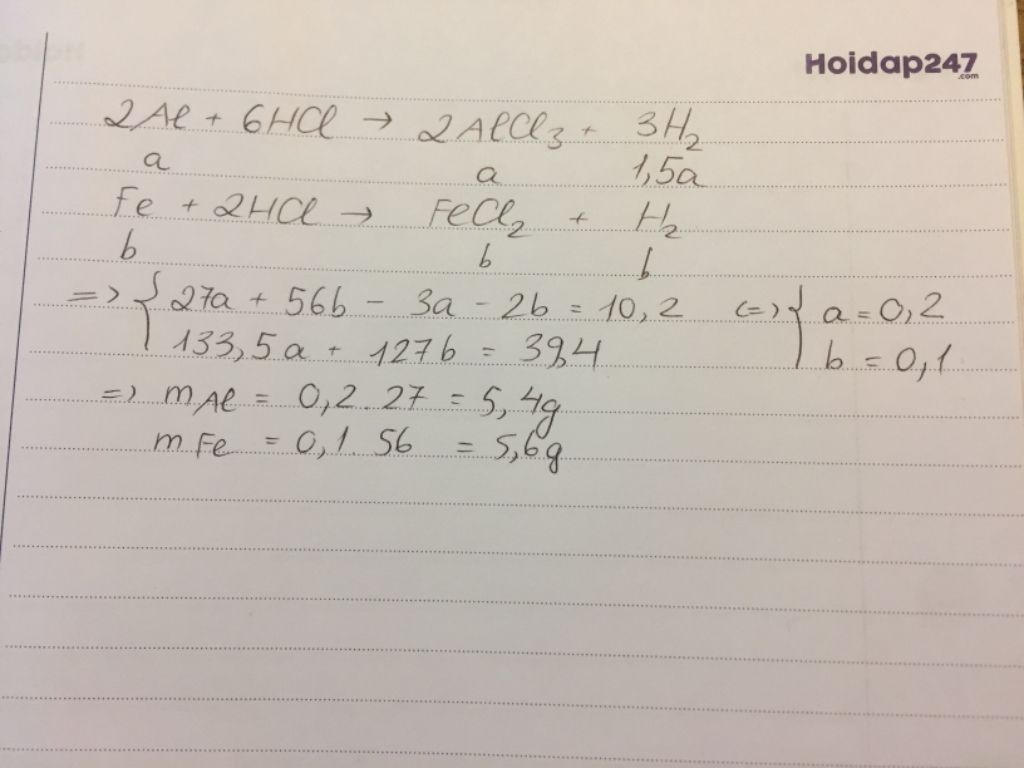 Hoidap247
.com
2Al + 6HCl → 2AlCl₃ + 3H₂
a a 1,5a
Fe + 2HCl → FeCl₂ + H₂
b b b
=> { 27a + 56b - 3a - 2b = 10,2 <=> { a = 0,2
133,5a + 127b = 39,4 b = 0,1
=> mAl = 0,2 . 27 = 5,4g
mFe = 0,1 . 56 = 5,6g